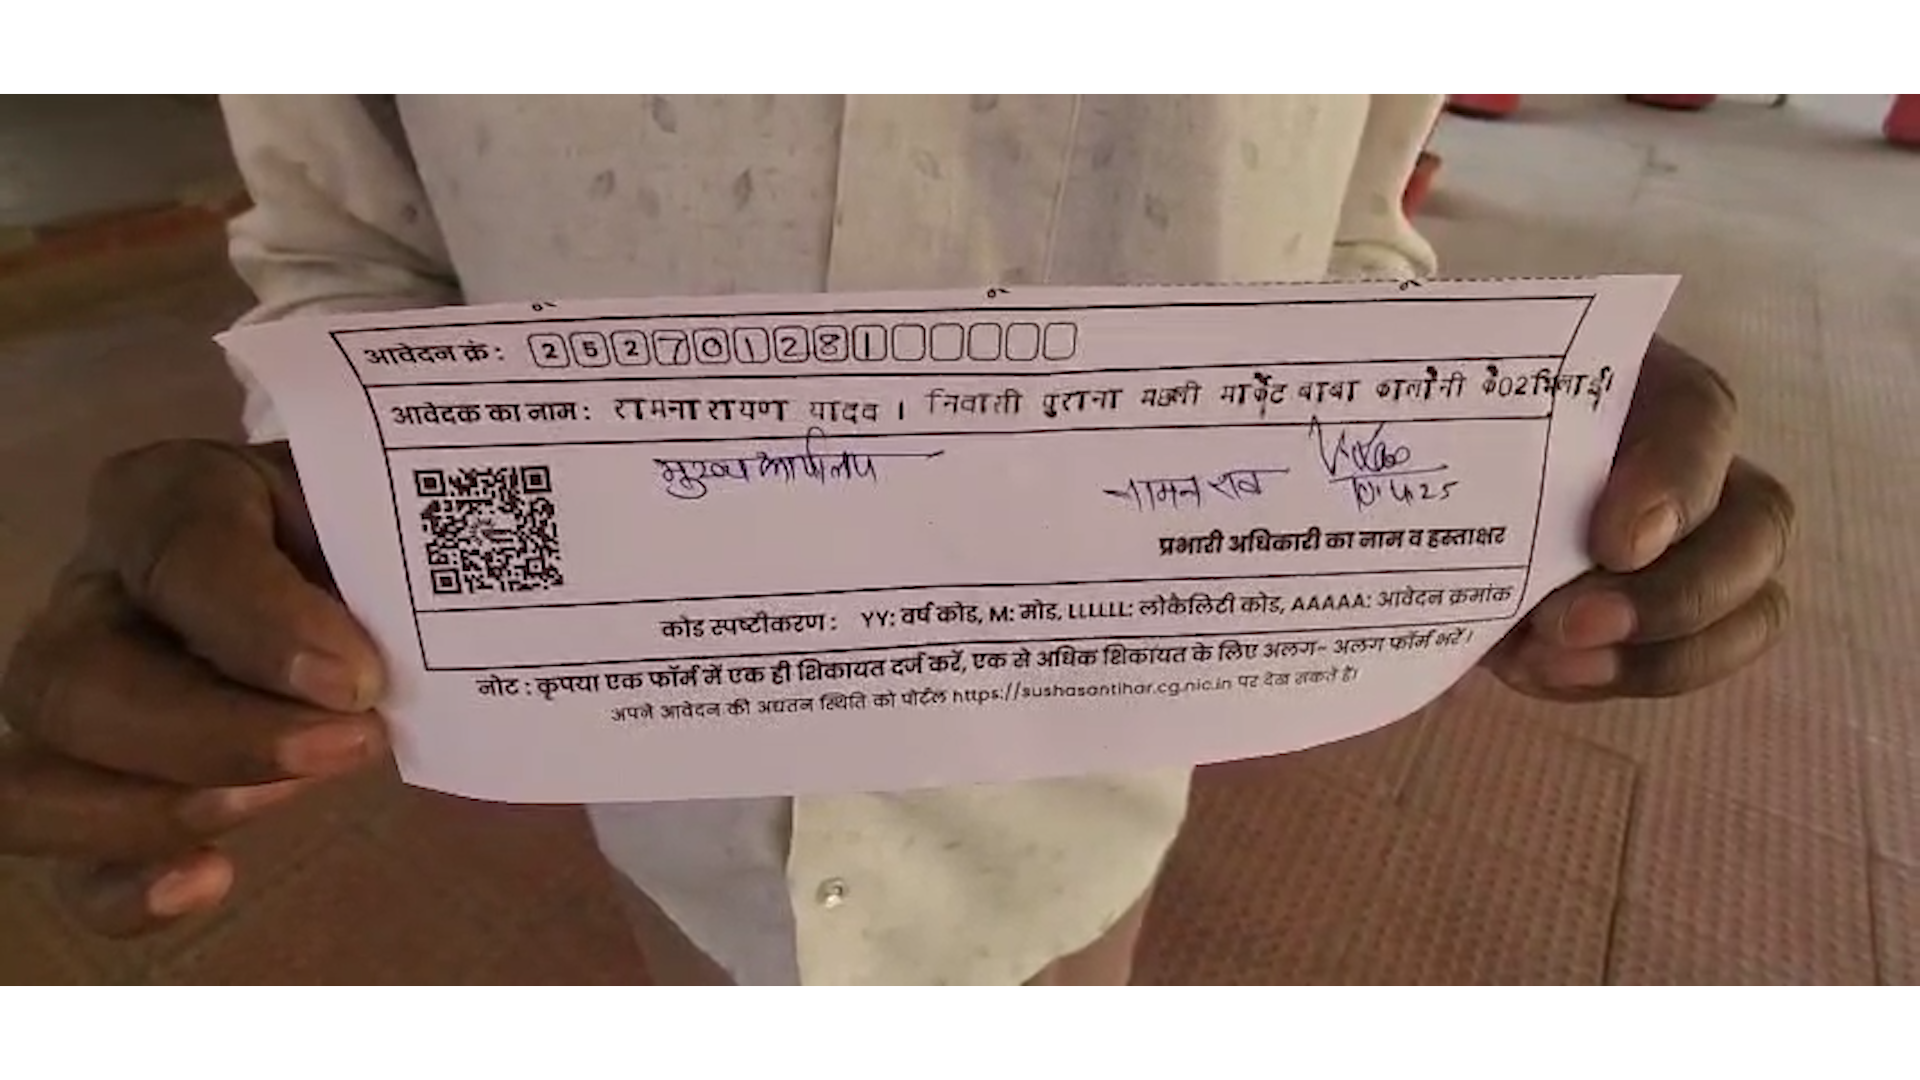 आवेदन क्रं: 252701281
आवेदक का नाम: रामनारायण यादव । निवासी पुराना मछली मार्केट बाबा कालोनी के02भिलाई।
मुख्य कार्यालय
नामन राव
10.4.25
प्रभारी अधिकारी का नाम व हस्ताक्षर
कोड स्पष्टीकरण: YY: वर्ष कोड, M: मोड, LLLLLL: लोकैलिटी कोड, AAAAA: आवेदन क्रमांक
नोट: कृपया एक फॉर्म में एक ही शिकायत दर्ज करें, एक से अधिक शिकायत के लिए अलग- अलग फॉर्म भरें।
अपने आवेदन की अद्यतन स्थिति को पोर्टल https://sushasantihar.cg.nic.in पर देख सकते हैं।